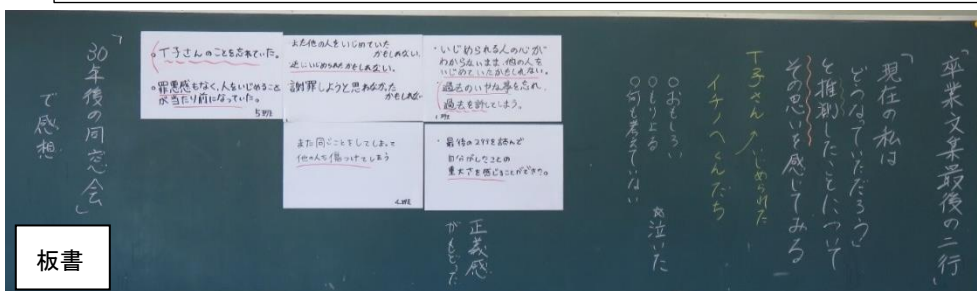 「卒業文集最後の二行」
「現在の私は
どうなっていただろう」
と推測したことについて
その思いを感じてみる
T子さん ↗いじめられた
イチノヘくんたち
○おもしろい
○しりょる
○何も考えていない
泣いた
正義感
がもどった
・いじめられる人の心が
わからないまま、他の人を
いじめていたかもしれない。
過去のいやな夢を忘れ、
過去を許してしまう。
・最後の2行を読んで
自分がしたことの
重大さを感じることができた。
また他の人をいじめていた
かもしれない。
逆にいじめられたかもしれない。
謝罪しようと思わなかった
かもしれない
また同じことをしてしまって
他の人も傷つけてしまう
。T子さんのことを忘れていた。
。罪悪感もなく、人をいじめること
が当たり前になっていた。
5班
「30年後の同窓会」
で感想
板書